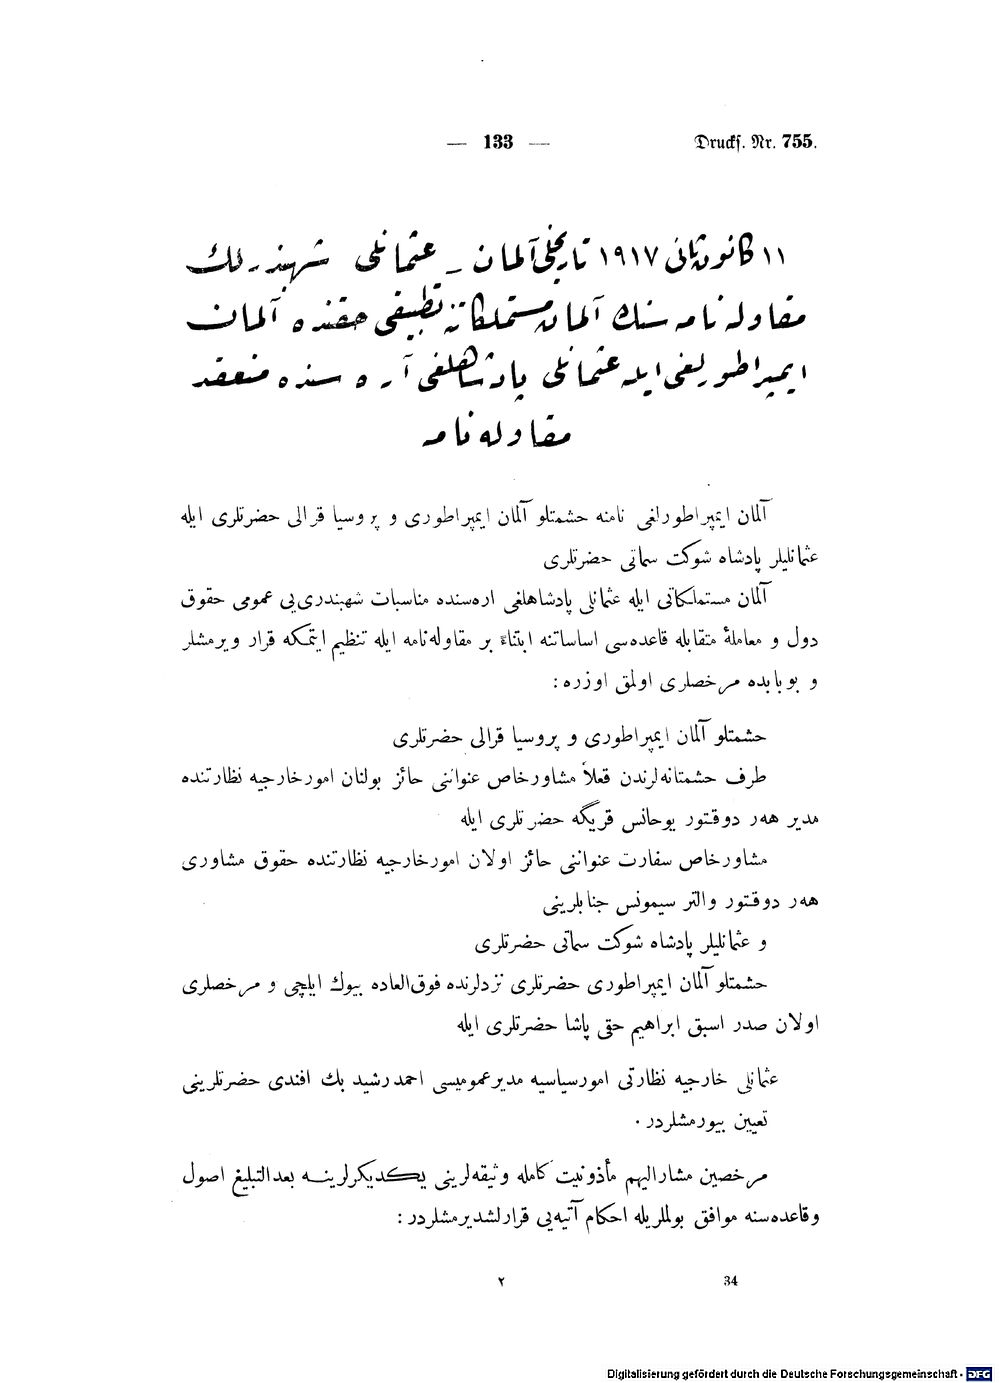 — 133 —
Drucks. Nr. 755.
١١ كانون ثانی ١٩١٧ تاریخلی آلمان ـ عثمانلی شهبندرلك
مقاوله نامه سنك آلمان مستملكاتنه تطبیقی حقنده آلمان
ایمپراطورلغی ایله عثمانلی پادشاهلغی آره سنده منعقد
مقاوله نامه
آلمان ایمپراطورلغی نامنه حشمتلو آلمان ایمپراطوری و پروسیا قرالی حضرتلری ایله
عثمانلیلر پادشاه شوكت سماتی حضرتلری
آلمان مستملكاتی ایله عثمانلی پادشاهلغی اره‌سنده مناسبات شهبندری‌یی عمومی حقوق
دول و معاملهٔ متقابله قاعده‌سی اساساتنه ابتناءً بر مقاوله‌نامه ایله تنظیم ایتمكه قرار ویرمشلر
و بوبابده مرخصلری اولمق اوزره :
حشمتلو آلمان ایمپراطوری و پروسیا قرالی حضرتلری
طرف حشمتانه‌لرندن فعلاً مشاورخاص عنواننی حائز بولنان امورخارجیه نظارتنده
مدیر هەر دوقتور یوحانس قریگه حضرتلری ایله
مشاورخاص سفارت عنواننی حائز اولان امورخارجیه نظارتنده حقوق مشاوری
هەر دوقتور والتر سیمونس جنابلرینی
و عثمانلیلر پادشاه شوكت سماتی حضرتلری
حشمتلو آلمان ایمپراطوری حضرتلری نزدلرنده فوق‌العاده بیوك ایلچی و مرخصلری
اولان صدر اسبق ابراهیم حقی پاشا حضرتلری ایله
عثمانلی خارجیه نظارتی امورسیاسیه مدیرعمومیسی احمدرشید بك افندی حضرتلرینی
تعیین بیورمشلردر .
مرخصین مشارالیهم مأذونیت كامله وثیقه‌لرینی یكدیكرلرینه بعدالتبلیغ اصول
وقاعده‌سنه موافق بولملریله احكام آتیه‌یی قرارلشدیرمشلردر :
٢
34
Digitalisierung gefördert durch die Deutsche Forschungsgemeinschaft - DFG